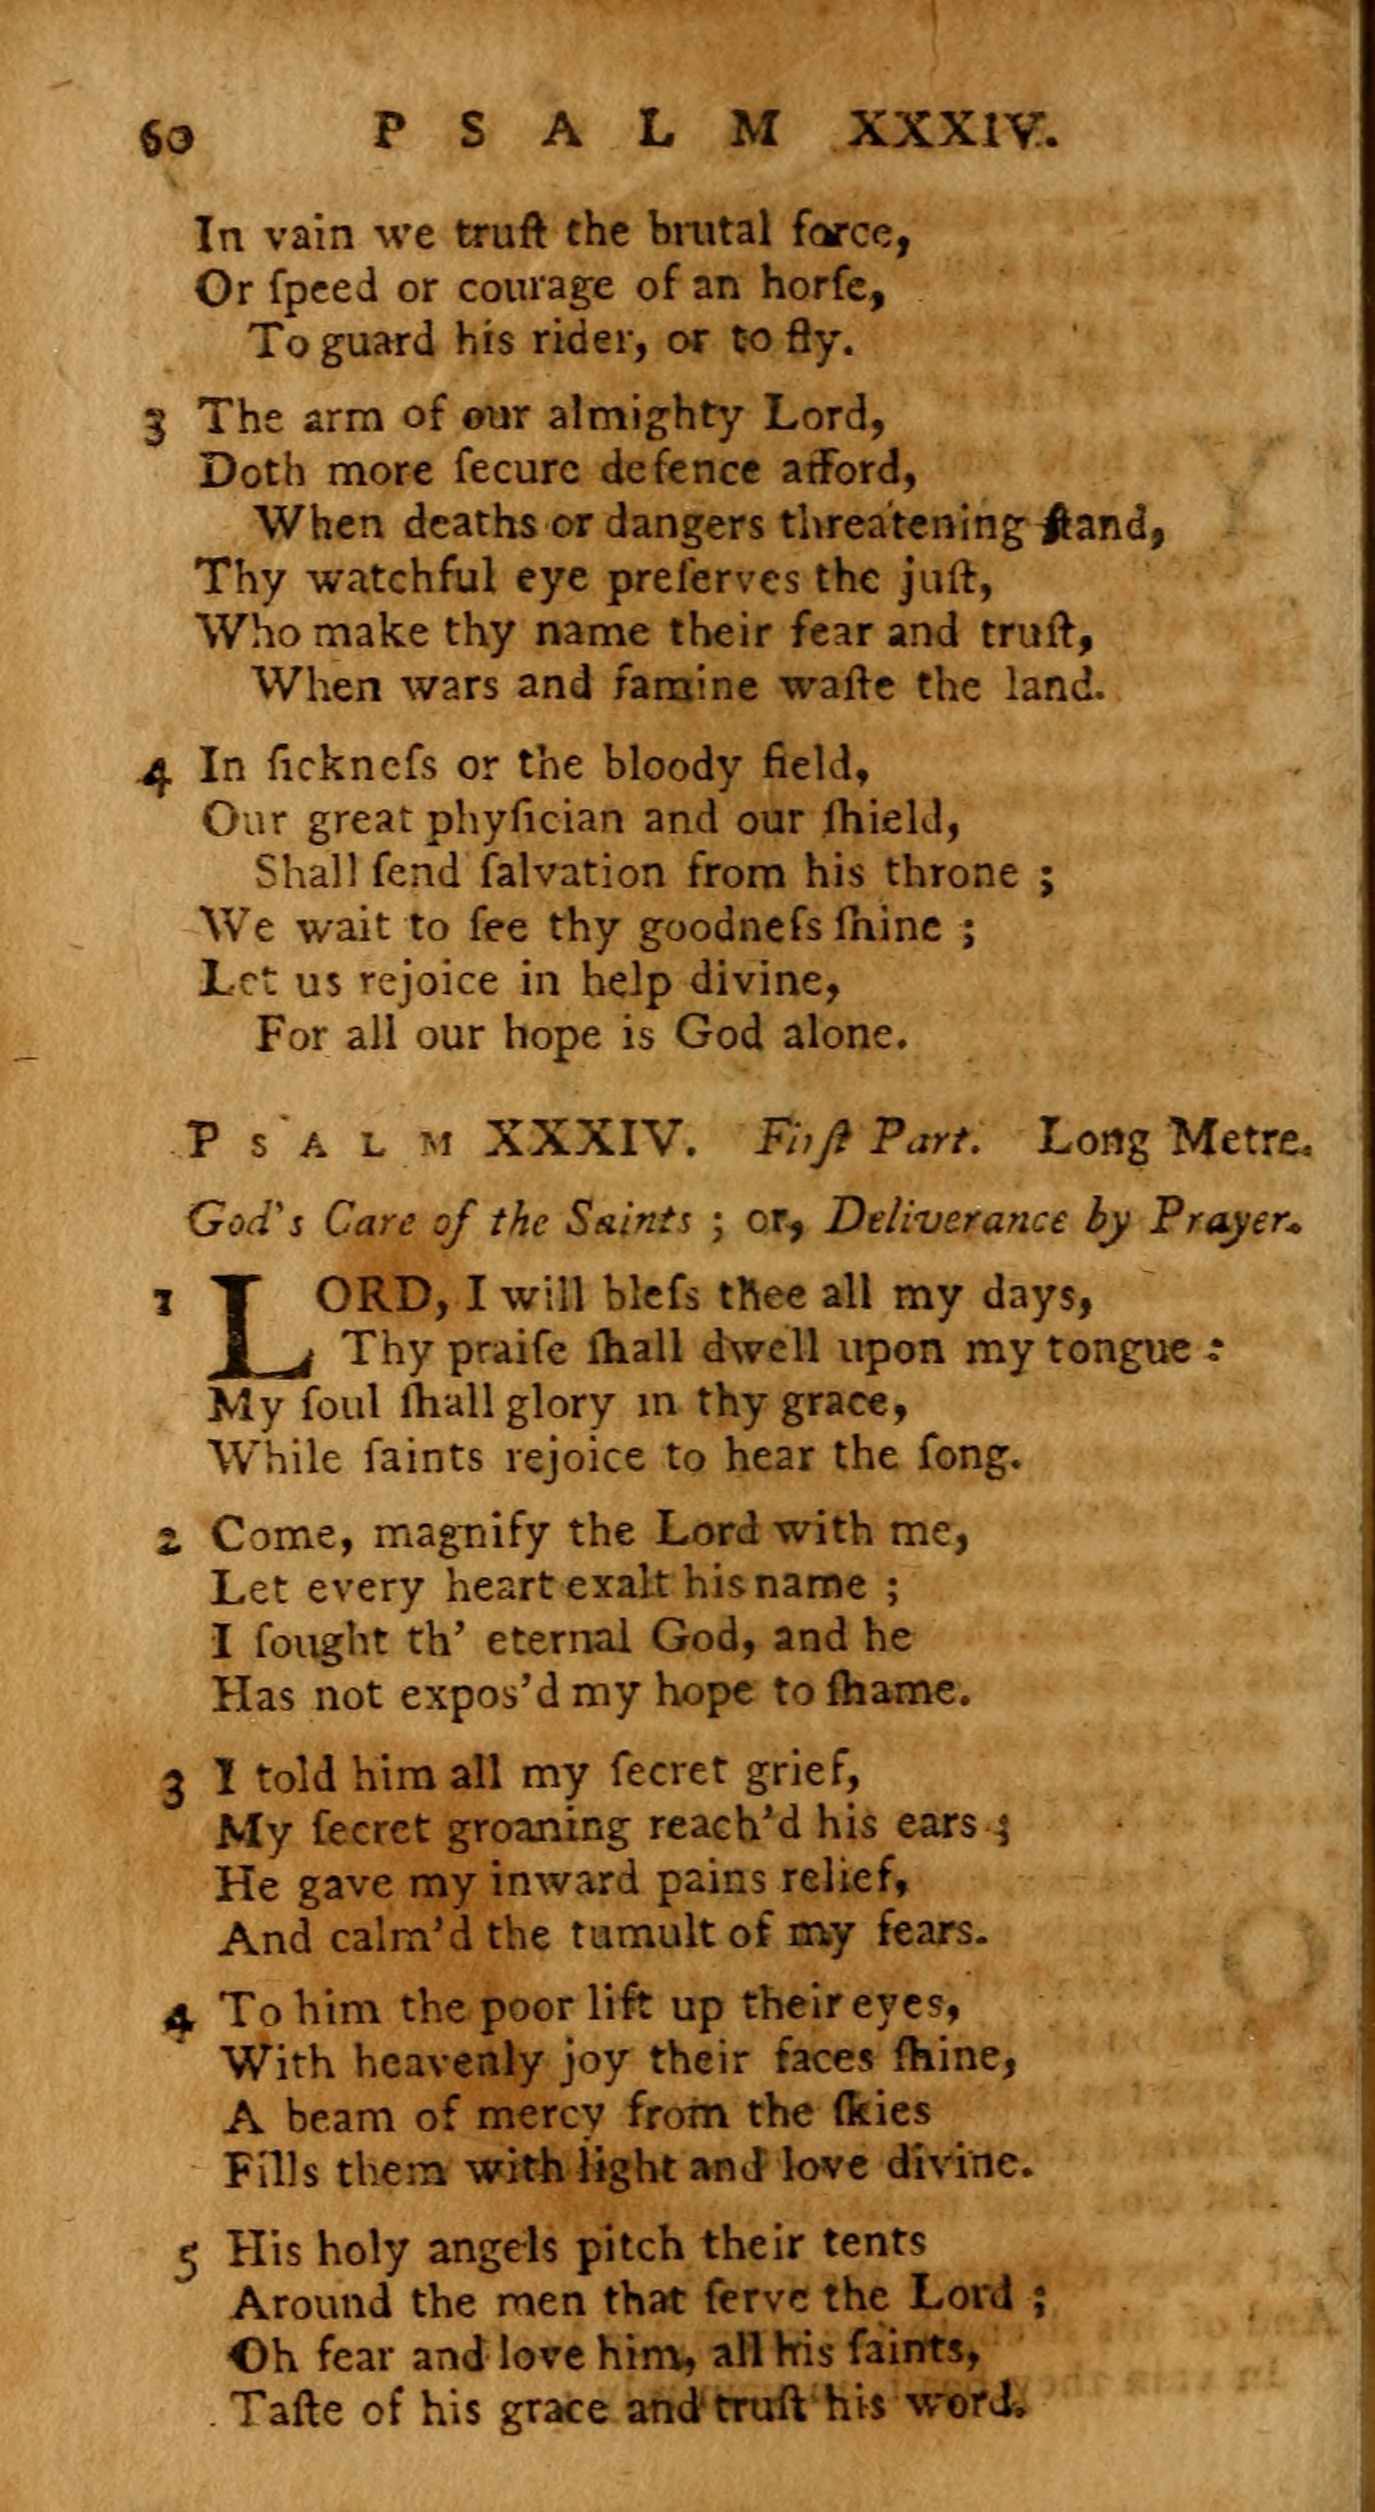 60 P S A L M XXXIV.
In vain we truſt the brutal force,
Or ſpeed or courage of an horſe,
To guard his rider, or to fly.
3 The arm of our almighty Lord,
Doth more ſecure defence afford,
When deaths or dangers threatening ſtand,
Thy watchful eye preſerves the juſt,
Who make thy name their fear and truſt,
When wars and famine waſte the land.
4 In ſickneſs or the bloody field,
Our great phyſician and our ſhield,
Shall ſend ſalvation from his throne ;
We wait to ſee thy goodneſs ſhine ;
Let us rejoice in help divine,
For all our hope is God alone.
P S A L M XXXIV. Firſt Part. Long Metre.
God's Care of the Saints ; or, Deliverance by Prayer.
1 LORD, I will bleſs thee all my days,
Thy praiſe ſhall dwell upon my tongue :
My ſoul ſhall glory in thy grace,
While ſaints rejoice to hear the ſong.
2 Come, magnify the Lord with me,
Let every heart exalt his name ;
I ſought th' eternal God, and he
Has not expos'd my hope to ſhame.
3 I told him all my ſecret grief,
My ſecret groaning reach'd his ears ;
He gave my inward pains relief,
And calm'd the tumult of my fears.
4 To him the poor lift up their eyes,
With heavenly joy their faces ſhine,
A beam of mercy from the ſkies
Fills them with light and love divine.
5 His holy angels pitch their tents
Around the men that ſerve the Lord ;
Oh fear and love him, all his ſaints,
Taſte of his grace and truſt his word.